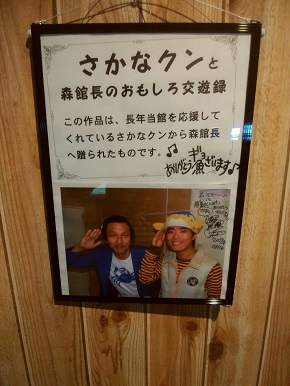 さかなクンと
森館長のおもしろ交遊録
この作品は、長年当館を応援して
くれているさかなクンから森館長
へ贈られたものです。
ありがとうギョ
漁ざいます